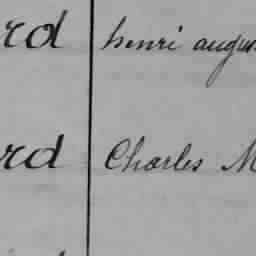 rd henri augus
rd Charles M